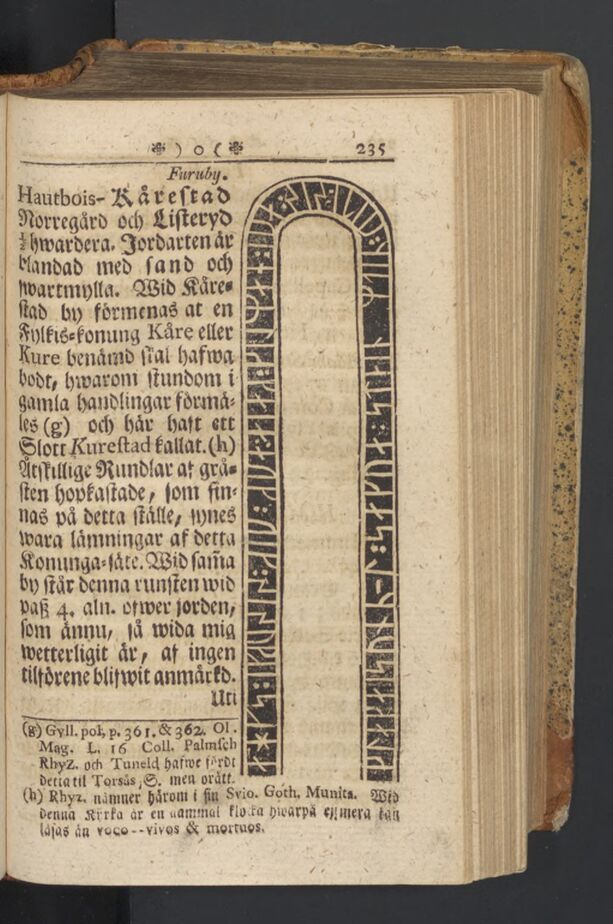 ) o ( 235
Furuby.
Hautbois- Kårestad
Norregård och Listeryd
½ hwardera. Jordarten är
blandad med sand och
swartmylla. Wid Kåre-
stad by förmenas at en
Fylkis-konung Kåre eller
Kure benämd skal hafwa
bodt, hwarom stundom i
gamla handlingar förmä-
les (g) och här haft ett
Slott Kurestad kallat. (h)
Åtskillige Rundlar af grå-
sten hopkastade, som fin-
nas på detta ställe, synes
wara lämningar af detta
Konunga-säte. Wid sam̃a
by står denna runsten wid
paß 4. aln. ofwer jorden,
som ännu, så wida mig
wetterligit är, af ingen
tilförene blifwit anmärkd.
Uti
(g) Gyll. pol. p. 361. & 362. Ol.
Mag. L. 16 Coll. Palmsch
Rhyz. och Tuneld hafwe fördt
detta til Torsås, S. men orätt.
(h) Rhyz. nämner härom i sin Svio. Goth. Munita. Wid
denna Kyrka är en gammal klocka hwarpå ej mera kan
läsas än voco -- vivos & mortuos.